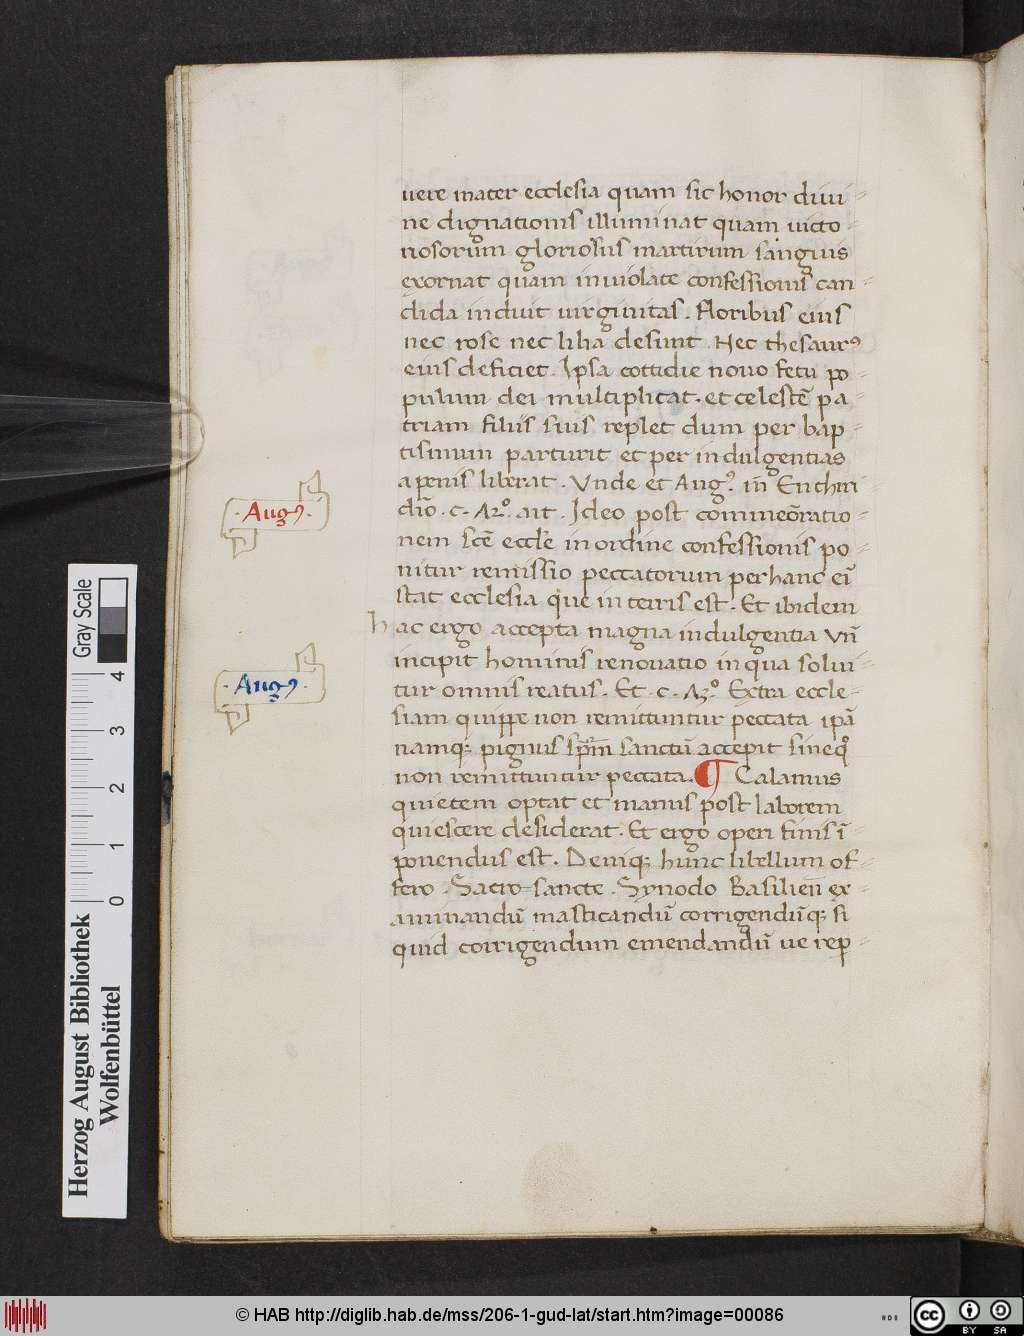 uere mater ecclesia quam sic honor diui-
ne dignationis illuminat quam uicto-
riosorum gloriosus martirum sanguis
exornat quam inuiolate confessionis can-
dida induit uirginitas. Floribus eius
nec rose nec lilia desunt. Nec thesaurꝰ
eius deficiet. Ipsa cottidie nouo fetu po-
pulum dei multiplicat. et celestē pa-
triam filiis suis replet dum per bap-
tismum parturit et per indulgentias
a penis liberat. Vnde et Augꝰ. in Enchiri
diō. c. 42º. ait. Ideo post commeōratio-
nem scē eccle in ordine confessionis po-
nitur remissio peccatorum per hanc eī
stat ecclesia que in terris est. Et ibidem
hac ergo accepta magna indulgentia vn̄
incipit hominis renouatio in qua solui-
tur omnis reatus. Et. c. 43º Extra eccle-
siam quippe non remittuntur peccata ipā
namqꝫ pignus spm̄ sanctū accepit sine qº
non remittuntur peccata. ¶ Calamus
quietem optat et manus post laborem
quiescere desiderat. Et ergo operi finis ī
ponendus est. Deniqꝫ hunc libellum of-
fero. Sacro-sancte. Synodo Basilien̄ ex-
aminandū masticandū corrigendūqꝫ si
quid corrigendum emendandū ue rep-
·Augꝰ·
·Augꝰ·
Herzog August Bibliothek
Wolfenbüttel
Gray Scale
0 1 2 3 4
© HAB http://diglib.hab.de/mss/206-1-gud-lat/start.htm?image=00086
cc BY SA